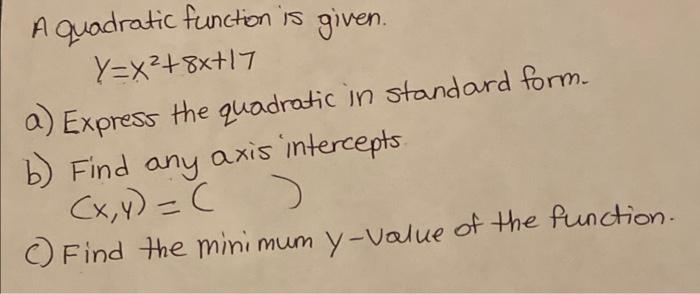 A quadratic function is given.
Y=x²+8x+17
a) Express the quadratic in standard form.
b) Find any axis intercepts.
(x,y) = (     )
c) Find the minimum y-value of the function.